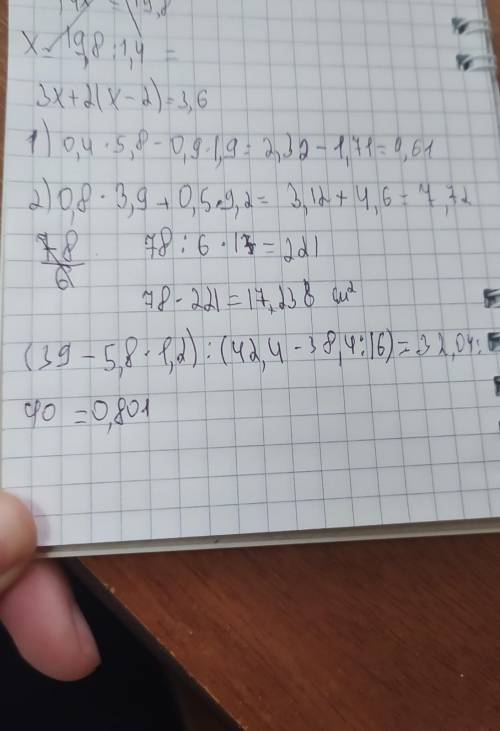 = 19,8
x = 19,8 : 1,4 =
3x + 2(x - 2) = 3,6
1) 0,4 · 5,8 - 0,9 · 1,9 = 2,32 - 1,71 = 0,61
2) 0,8 · 3,9 + 0,5 · 9,2 = 3,12 + 4,6 = 7,72
78/6 78 : 6 · 17 = 221
78 · 221 = 17,238 см²
(39 - 5,8 · 1,2) : (42,4 - 38,4 : 16) = 32,04 :
40 = 0,801